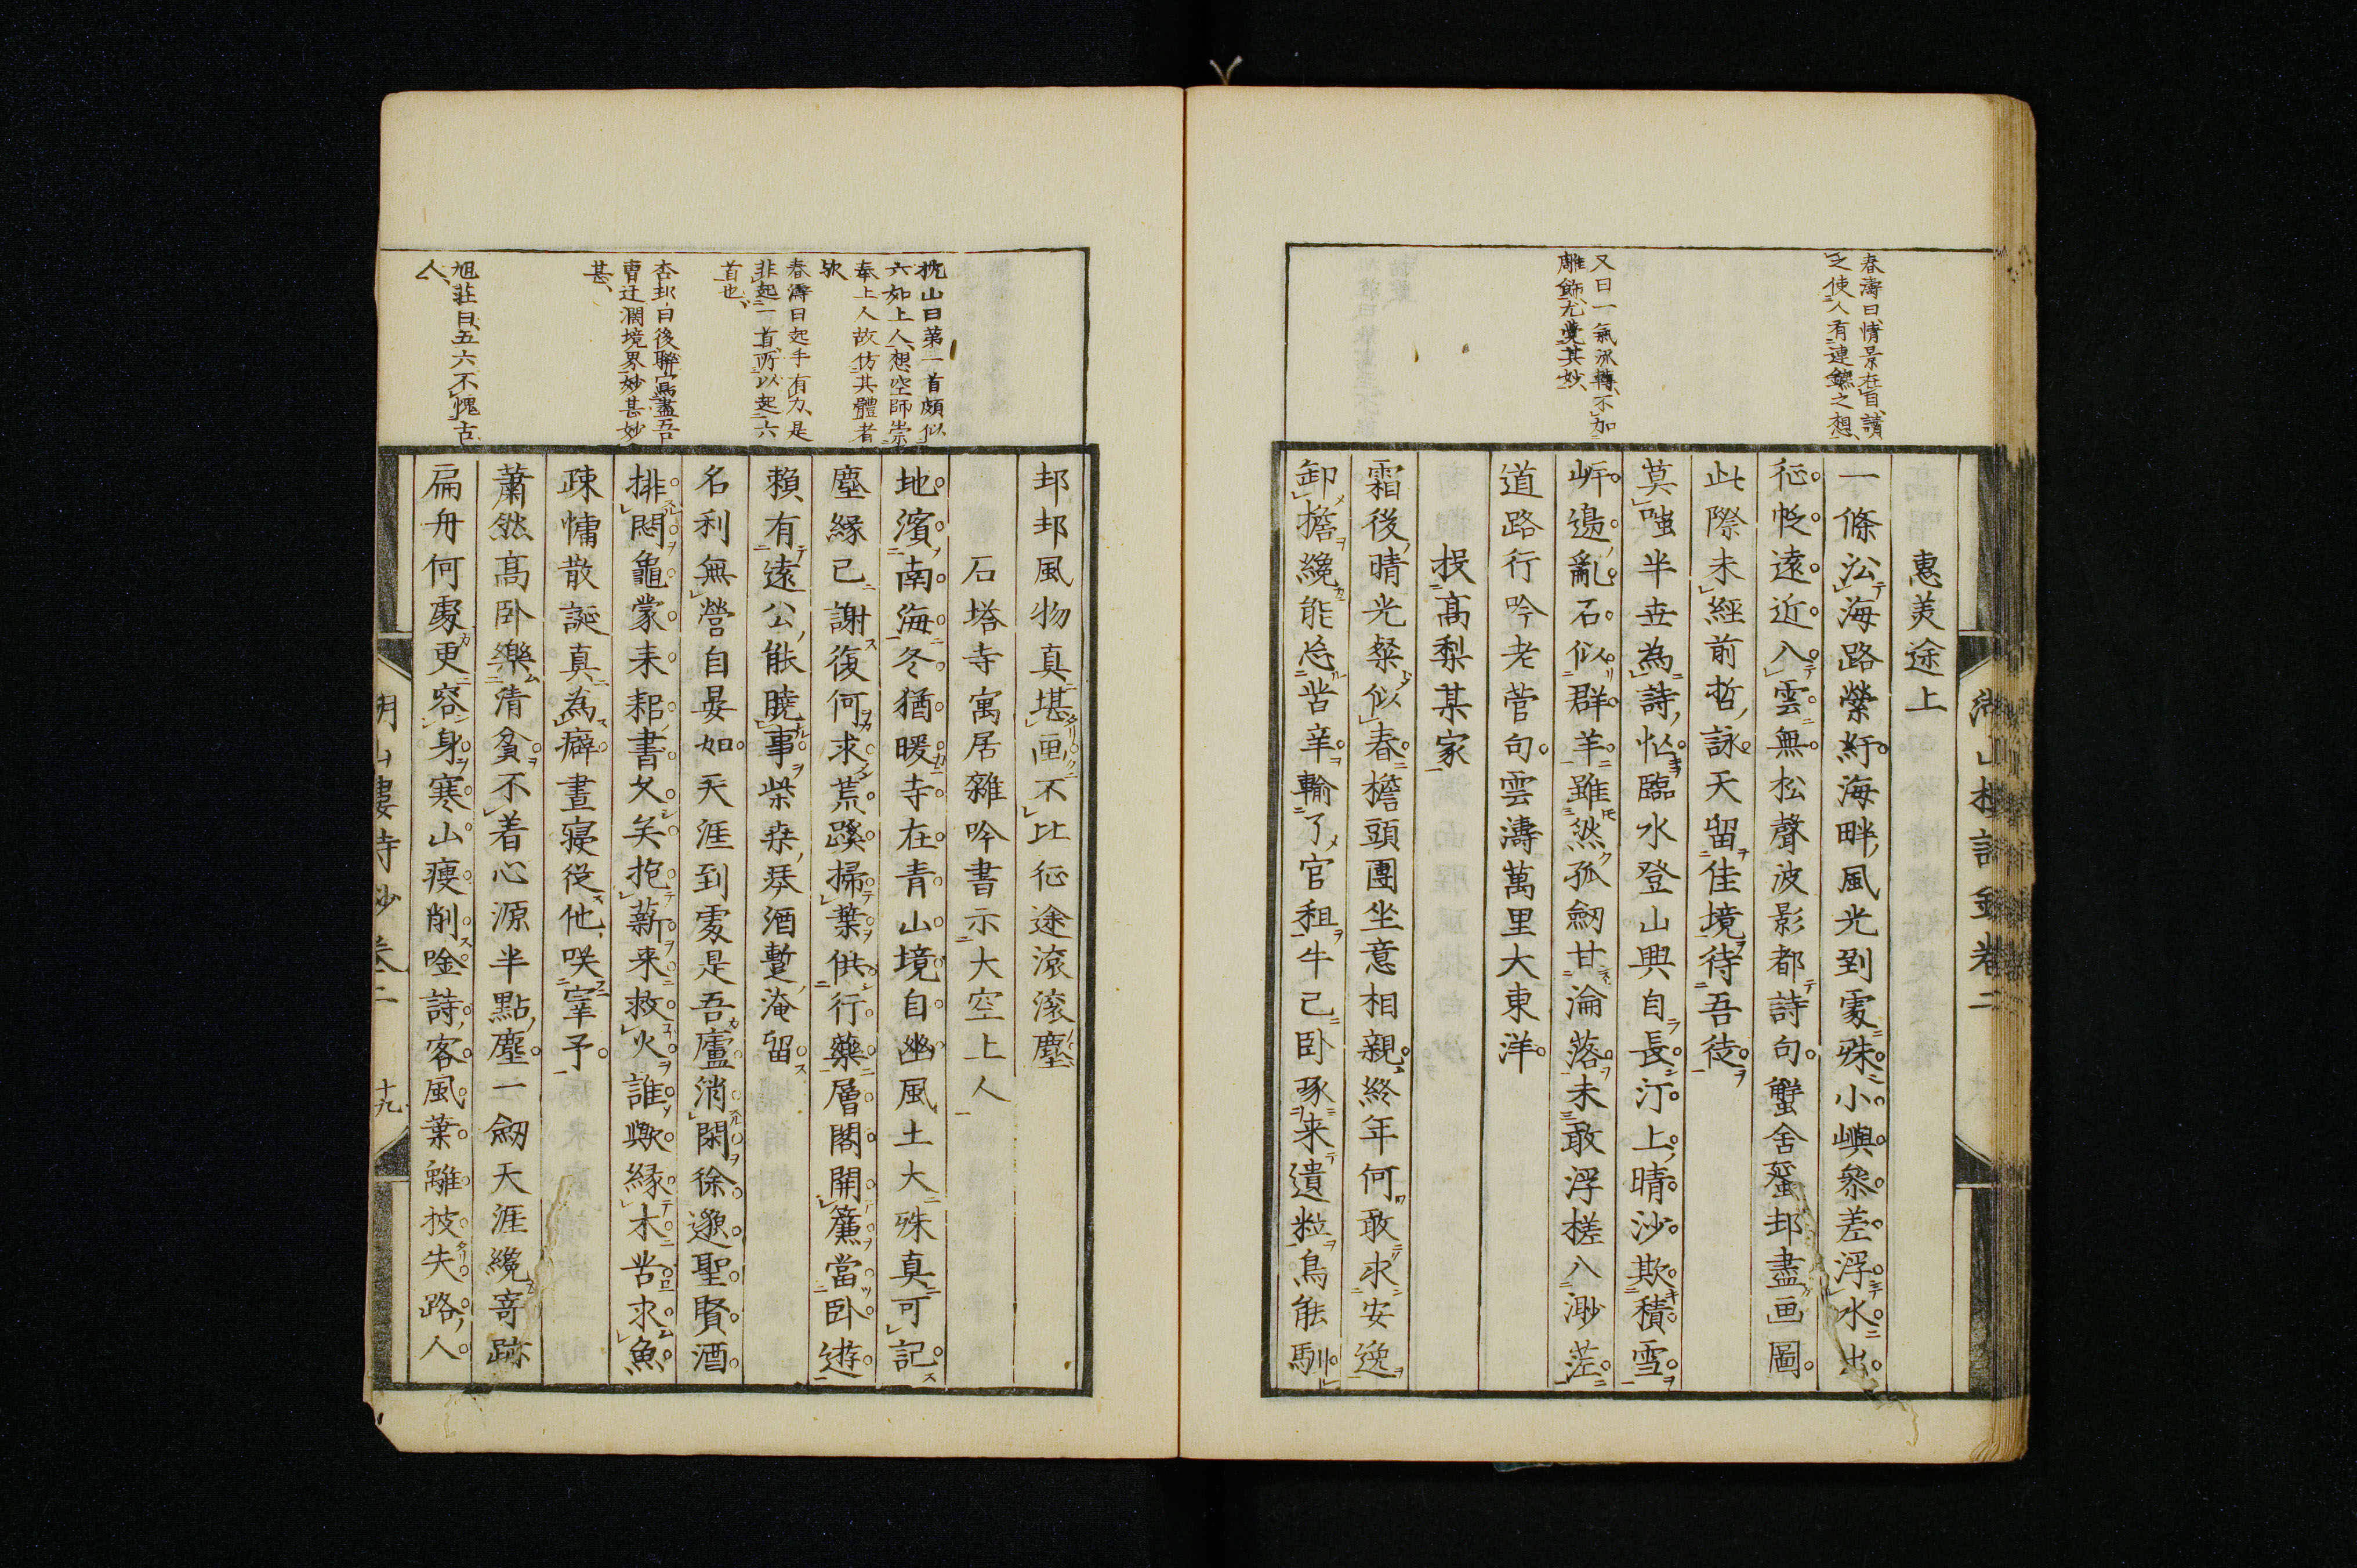 春濤曰、情景在目、讀
之使人有連鑣之想、
又曰一氣流轉、不加
雕飾、尤覺其妙、
湖山樓詩鈔卷二
惠美途上
一條沿海路縈紆海畔風光到處殊小嶼參差浮水出
征帆遠近入雲無松聲波影都詩句蟹舍蜑邨盡画圖
此際未經前哲詠天留佳境待吾徒
莫嗤半世為詩忙臨水登山興自長汀上晴沙欺積雪
岸邊亂石似群羊雖然孤劒甘淪落未敢浮槎入渺茫
道路行吟老菅句雲濤萬里大東洋
投高梨某家
霜後晴光粲似春檐頭團坐意相親終年何敢求安逸
卸擔纔能忘苦辛輸了官租牛已卧琢来遺粒鳥能馴
枕山曰第一首頗似
六如上人、想空師崇
奉上人故仿其體者
欤
春濤曰起手有力、是
非起一首、所以起六
首也、
杏邨曰後聯寫盡吾
曹迂濶境界妙甚妙
甚、
旭莊曰、五六不愧古
人、
邨邨風物真堪画不比征途滾滾塵
石塔寺寓居雜吟書示大空上人
地濱南海冬猶暖寺在青山境自幽風土大殊真可記
塵緣已謝復何求荒蹊掃葉供行藥層閣開簾當卧遊
賴有遠公能曉事柴桒琴酒蹔淹留
名利無營自晏如天涯到處是吾廬消閑徐邈聖賢酒
排悶龜蒙耒耜書久矣抱薪来救火誰歟緣木苦求魚
疎慵散誕真為癖晝寢從他咲宰予
蕭然高卧樂清貧不着心源半點塵一劒天涯纔寄跡
扁舟何處更容身寒山瘦削唫詩客風葉離披失路人
湖山樓詩鈔卷二
十九